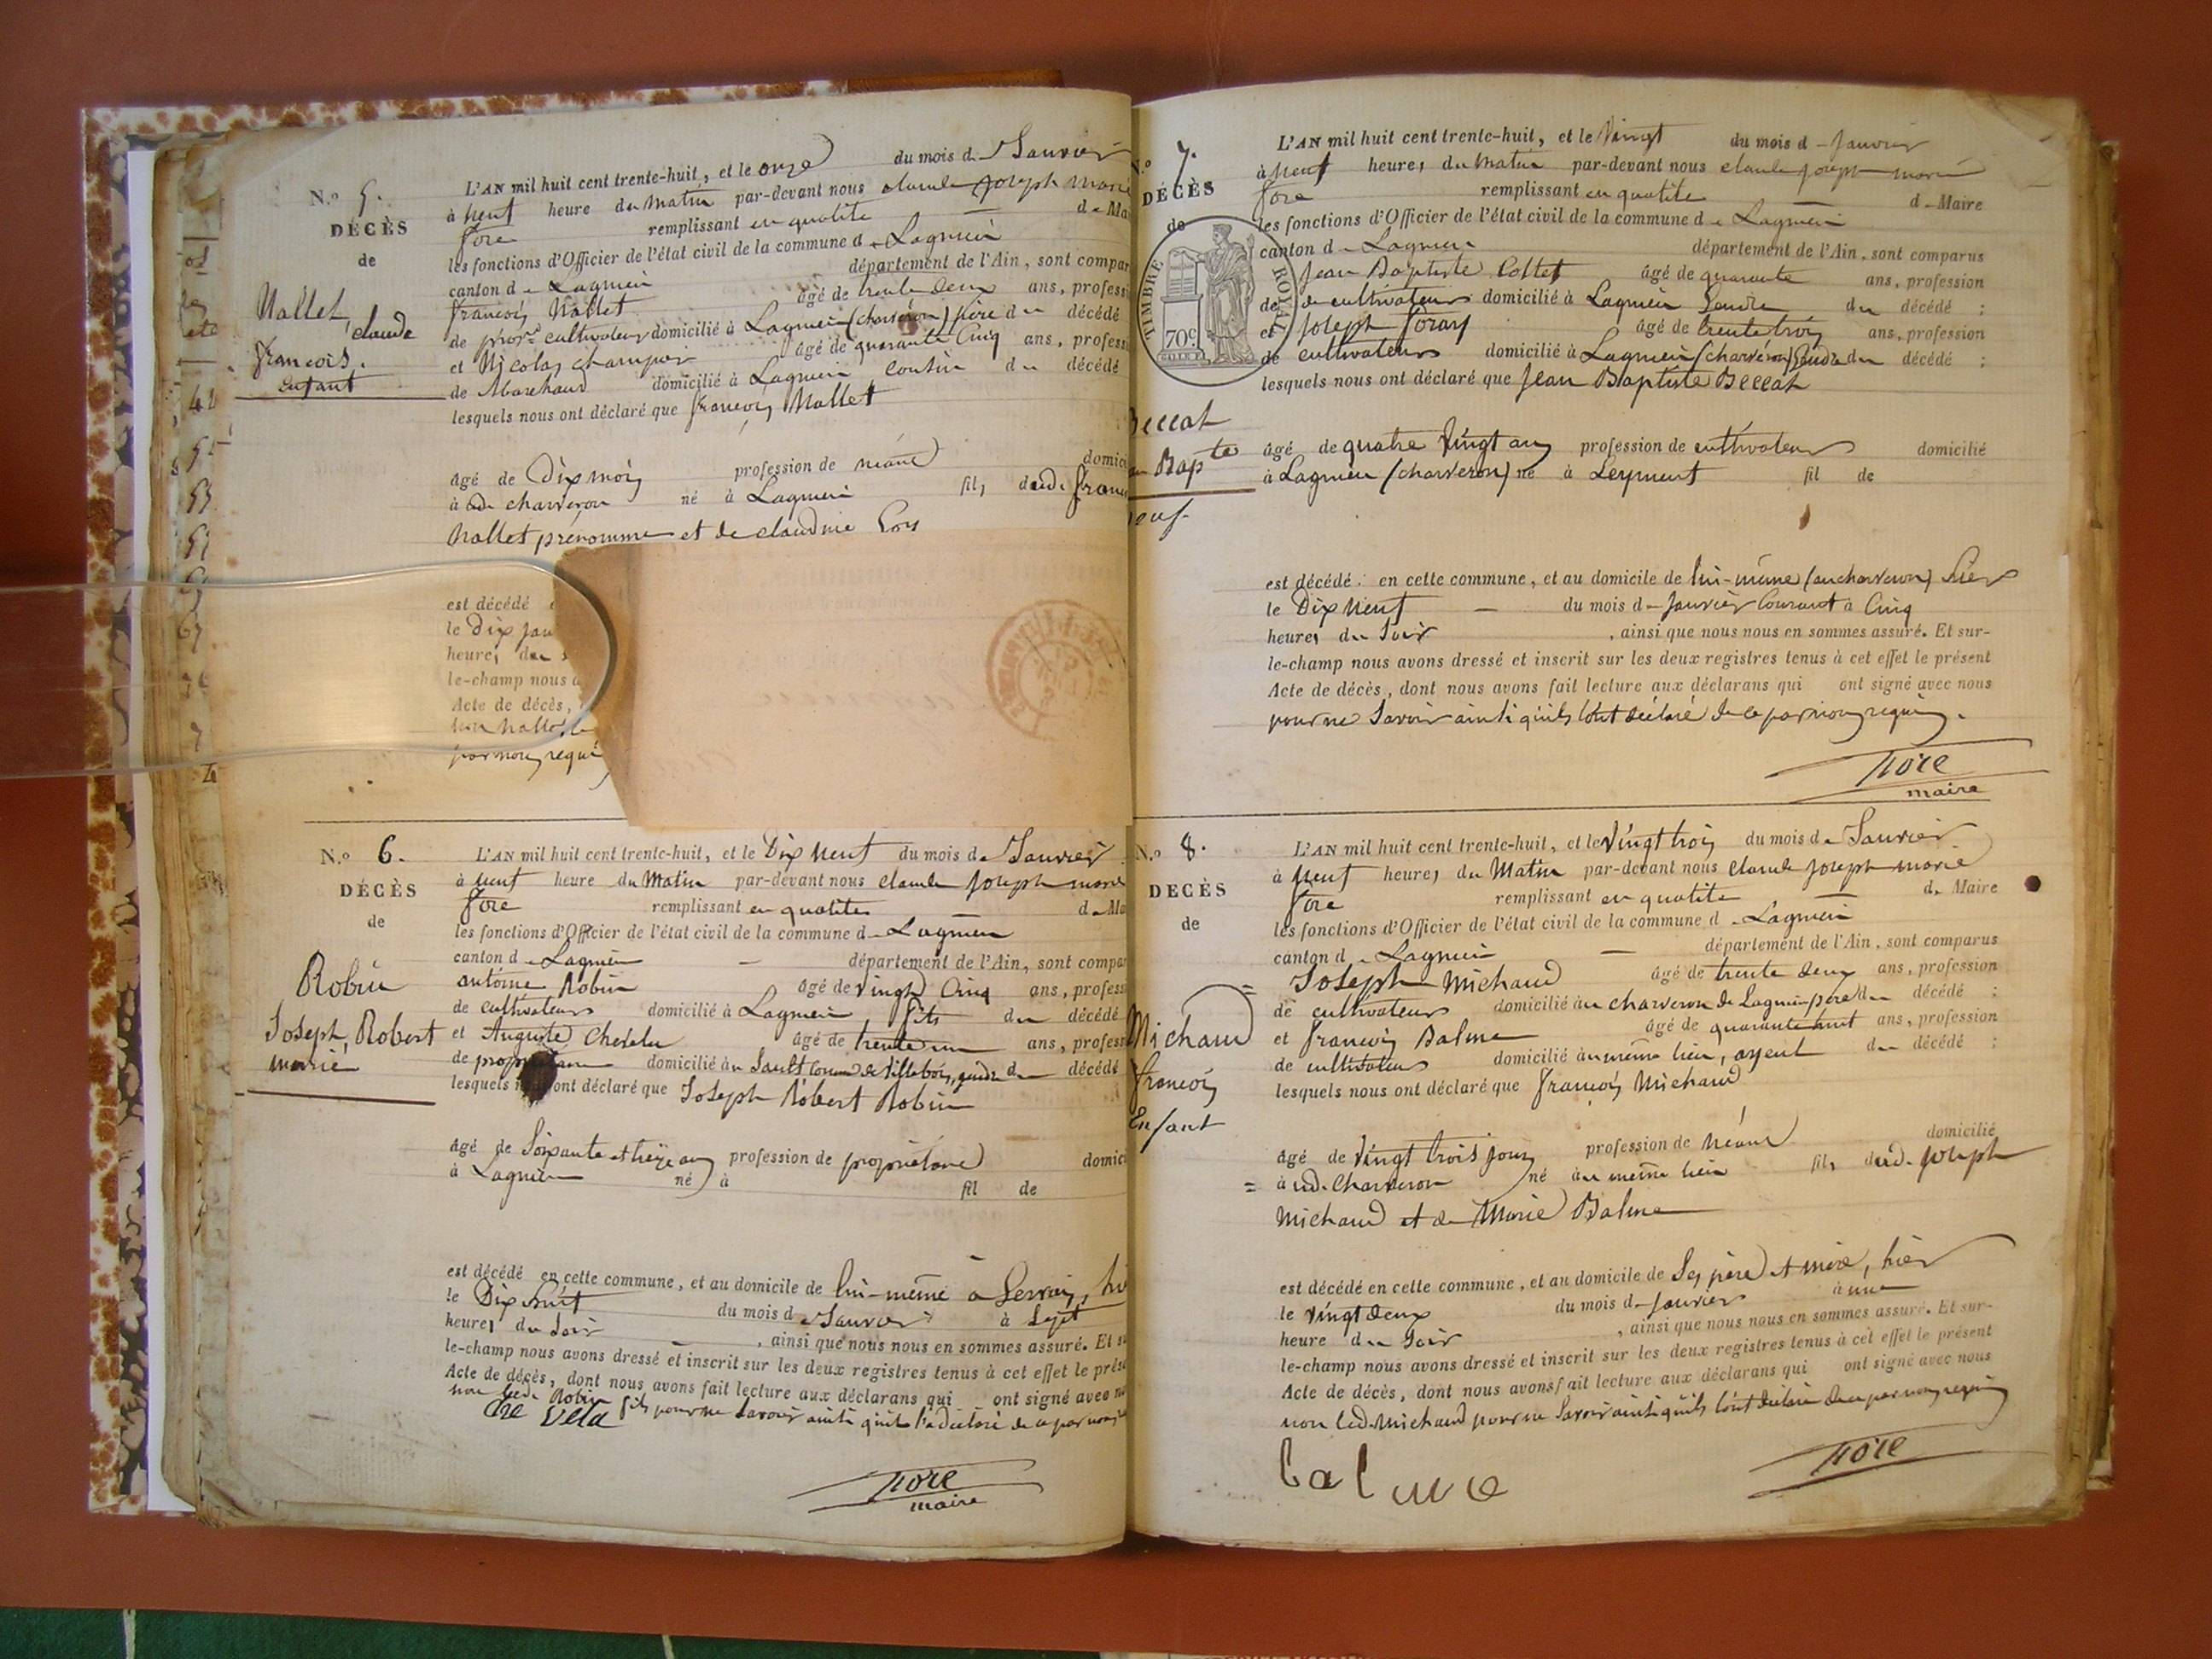 N.o 5.
DÉCÈS
de
Nallet,
claude
francois.
enfant
L'AN mil huit cent trente-huit, et le onze du mois d. Janvier
à neuf heure du matin par-devant nous claude joseph marie
fore remplissant en qualité d. Ma
les fonctions d'Officier de l'état civil de la commune d. Lagnieu
canton d. Lagnieu département de l'Ain, sont compar
francois Nallet âgé de trente deux ans, professi
de cultivateur domicilié à Lagnieu (charveron) père du décédé
et Nicolas champier âgé de quarante Cinq ans, profess
de Marchand domicilié à Lagnieu cousin du décédé
lesquels nous ont déclaré que francois Nallet
âgé de Dix mois profession de néant domici
à ud. charveron né à Lagnieu fils dud. franc
Nallet prénommé et de claudine
est décédé
le dix jan
heures du s
le-champ nous a
Acte de décès,
par nous requi
N.o 6.
DÉCÈS
de
Robin
Joseph, Robert
marié
L'AN mil huit cent trente-huit, et le Dix Neuf du mois de Janvier
à neuf heure du Matin par-devant nous claude joseph marie
fore remplissant en qualité d. Ma
les fonctions d'Officier de l'état civil de la commune d. Lagnieu
canton d. Lagnieu département de l'Ain, sont compar
antoine Robin âgé de vingt Cinq ans, profess
de cultivateur domicilié à Lagnieu, fils du décédé
et Auguste âgé de trente un ans, profess
de domicilié au Sault Comm. de Villebois, gendre du décédé
lesquels ont déclaré que Joseph Robert Robin
âgé de Soixante et treize ans profession de propriétaire domici
à Lagnieu né à fil de
est décédé en cette commune, et au domicile de lui-même à
le Dix huit du mois de Janvier à Sept
heures du Soir, ainsi que nous nous en sommes assuré. Et s
le-champ nous avons dressé et inscrit sur les deux registres tenus à cet effet le prése
Acte de décès, dont nous avons fait lecture aux déclarans qui ont signé avec n
non led. Robin fils pour ne savoir ainsi qu'il l'a déclaré de ce par nous
fore
maire
N.o 7.
DÉCÈS
de
TIMBRE ROYAL
70c.
eccat
Bapte
euf
L'AN mil huit cent trente-huit, et le Vingt du mois d. Janvier
à neuf heures du Matin par-devant nous claude joseph marie
fore remplissant en qualité d. Maire
les fonctions d'Officier de l'état civil de la commune d. Lagnieu
canton d. Lagnieu département de l'Ain, sont comparus
Jean Baptiste Collet âgé de quarante ans, profession
de cultivateur domicilié à Lagnieu Gendre du décédé ;
et joseph âgé de trente trois ans, profession
de cultivateur domicilié à Lagnieu (charveron) Gendre du décédé ;
lesquels nous ont déclaré que Jean Baptiste Beccat
âgé de quatre Vingt ans profession de cultivateur domicilié
à Lagnieu (charveron) né à Leyment fil de
est décédé en cette commune, et au domicile de lui-même (au charveron) hier
le Dix Neuf du mois d. Janvier Courant à Cinq
heures du Soir, ainsi que nous nous en sommes assuré. Et sur-
le-champ nous avons dressé et inscrit sur les deux registres tenus à cet effet le présent
Acte de décès, dont nous avons fait lecture aux déclarans qui ont signé avec nous
pour ne Savoir ainsi qu'ils l'ont déclaré de ce par nous requis.
fore
maire
N.o 8.
DÉCÈS
de
Michaud
francois
Enfant
L'AN mil huit cent trente-huit, et le Vingt trois du mois de Janvier
à neuf heures du Matin par-devant nous claude joseph marie
fore remplissant en qualité d. Maire
les fonctions d'Officier de l'état civil de la commune d. Lagnieu
canton d. Lagnieu département de l'Ain, sont comparus
Joseph Michaud âgé de trente deux ans, profession
de cultivateur domicilié au charveron de Lagnieu père du décédé ;
et francois Balme âgé de quarante huit ans, profession
de cultivateur domicilié au même lieu, ayeul du décédé ;
lesquels nous ont déclaré que francois Michaud
âgé de Vingt trois jours profession de néant domicilié
à ud. Charveron né au même lieu fils dud. joseph
Michaud et de Marie Balme
est décédé en cette commune, et au domicile de Ses père et mère, hier
le vingt deux du mois d. janvier à une
heure du Soir, ainsi que nous nous en sommes assuré. Et sur-
le-champ nous avons dressé et inscrit sur les deux registres tenus à cet effet le présent
Acte de décès, dont nous avons fait lecture aux déclarans qui ont signé avec nous
non led. Michaud pour ne Savoir ainsi qu'ils l'ont déclaré de ce par nous requis
fore
balme